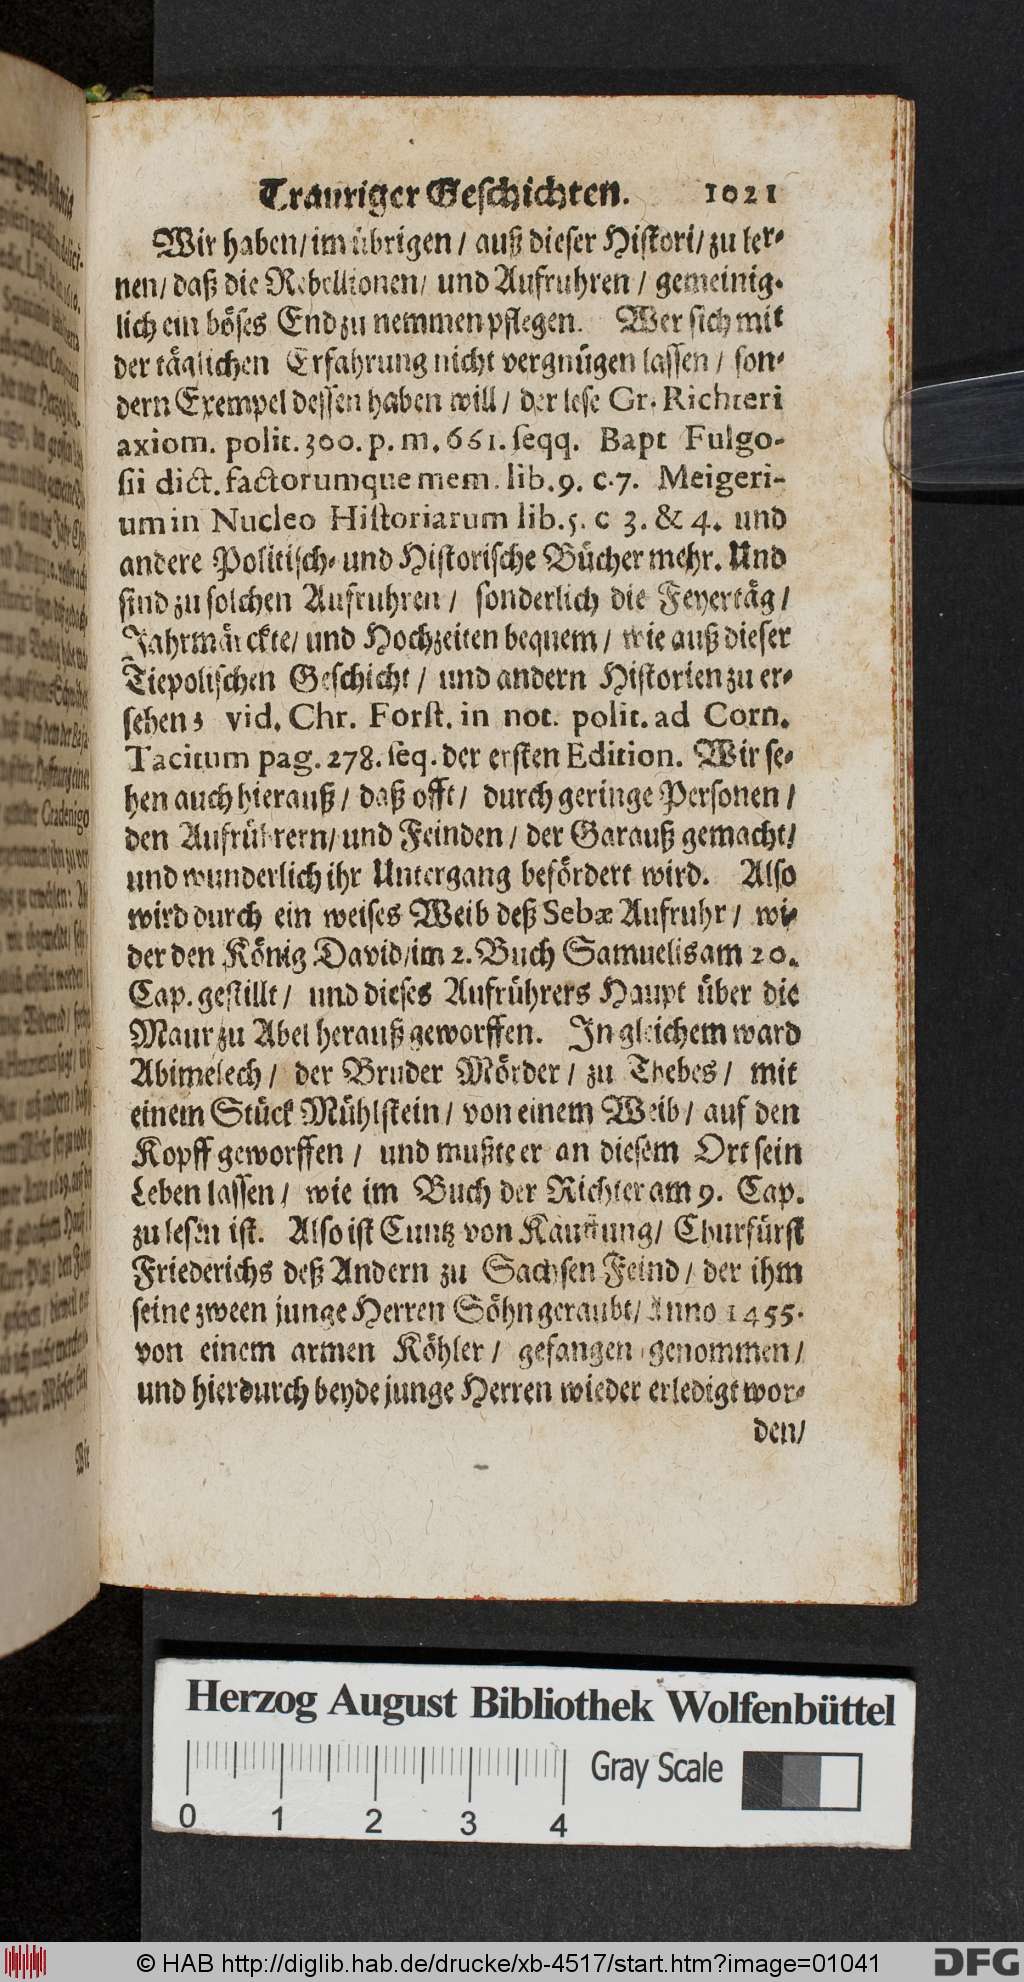 Trauriger Geschichten. 1021
Wir haben/ im übrigen / auß dieser Histori/ zu ler-
nen/ daß die Rebellionen/ und Aufruhren / gemeinig-
lich ein böses End zu nemmen pflegen. Wer sich mit
der täglichen Erfahrung nicht vergnügen lassen / son-
dern Exempel dessen haben will / der lese Gr. Richteri
axiom. polit. 300. p. m. 661. seqq. Bapt Fulgo-
sii dict. factorumque mem. lib. 9. c. 7. Meigeri-
um in Nucleo Historiarum lib. 5. c 3. & 4. und
andere Politisch- und Historische Bücher mehr. Und
sind zu solchen Aufruhren / sonderlich die Feyertäg /
Jahrmärckte/ und Hochzeiten bequem / wie auß dieser
Tiepolischen Geschicht / und andern Historien zu er-
sehen; vid. Chr. Forst. in not. polit. ad Corn.
Tacitum pag. 278. seq. der ersten Edition. Wir se-
hen auch hierauß / daß offt / durch geringe Personen /
den Aufrührern/ und Feinden / der Garauß gemacht/
und wunderlich ihr Untergang befördert wird. Also
wird durch ein weises Weib deß Sebæ Aufruhr / wi-
der den König David/ im 2. Buch Samuelis am 20.
Cap. gestillt / und dieses Aufrührers Haupt über die
Maur zu Abel herauß geworffen. In gleichem ward
Abimelech / der Bruder Mörder / zu Thebes / mit
einem Stück Mühlstein / von einem Weib / auf den
Kopff geworffen / und mußte er an diesem Ort sein
Leben lassen / wie im Buch der Richter am 9. Cap.
zu lesen ist. Also ist Cuntz von Kauffung/ Churfürst
Friederichs deß Andern zu Sachsen Feind / der ihm
seine zween junge Herren Söhn geraubt/ Anno 1455.
von einem armen Köhler / gefangen genommen /
und hierdurch beyde junge Herren wieder erledigt wor-
den/
Herzog August Bibliothek Wolfenbüttel
Gray Scale
0 1 2 3 4
© HAB http://diglib.hab.de/drucke/xb-4517/start.htm?image=01041
DFG